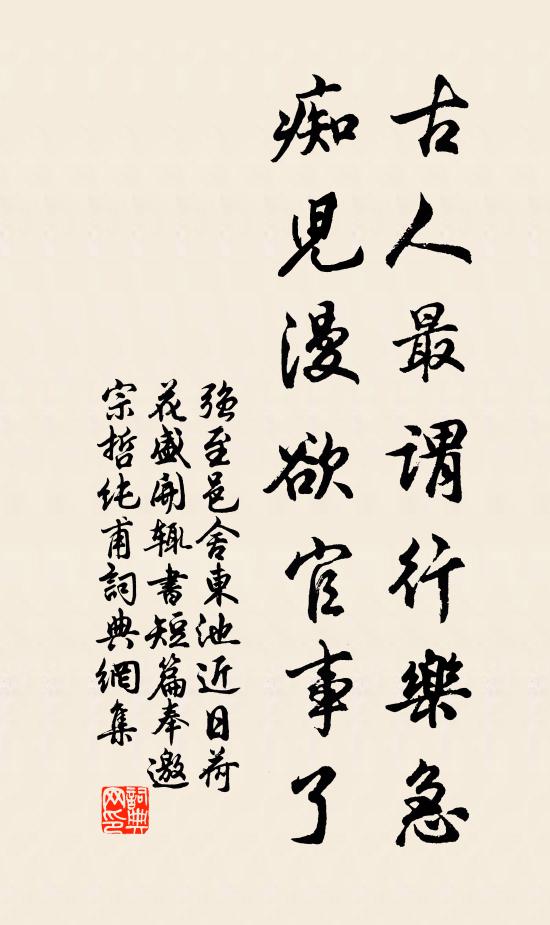 古人最謂行樂急
痴児漫欲官事了
強至邑舍東池近日荷
花盛開輒書短篇奉邀
宗哲純甫詞典網集
詞典网印